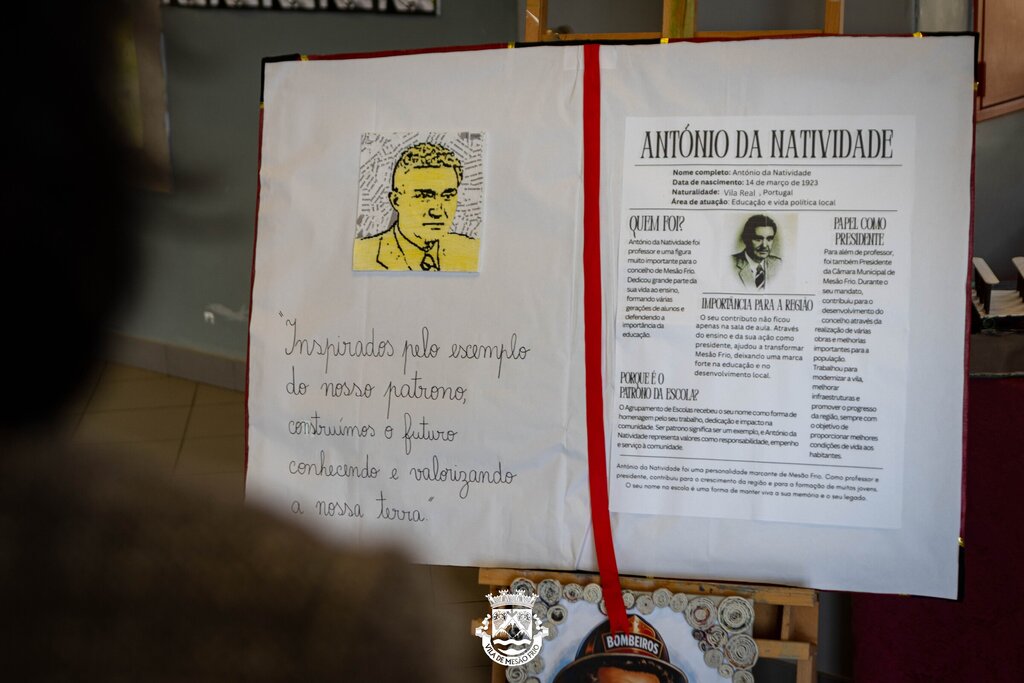 "Inspirados pelo escemplo
do nosso patrono,
construímos o futuro
conhecendo e valorizando
a nossa terra."
ANTÓNIO DA NATIVIDADE
Nome completo: António da Natividade
Data de nascimento: 14 de março de 1923
Naturalidade: Vila Real , Portugal
Área de atuação: Educação e vida política local
QUEM FOI?
António da Natividade foi
professor e uma figura
muito importante para o
concelho de Mesão Frio.
Dedicou grande parte da
sua vida ao ensino,
formando várias
gerações de alunos e
defendendo a
importância da
educação.
IMPORTÂNCIA PARA A REGIÃO
O seu contributo não ficou
apenas na sala de aula. Através
do ensino e da sua ação como
presidente, ajudou a transformar
Mesão Frio, deixando uma marca
forte na educação e no
desenvolvimento local.
PAPEL COMO
PRESIDENTE
Para além de professor,
foi também Presidente
da Câmara Municipal de
Mesão Frio. Durante o
seu mandato,
contribuiu para o
desenvolvimento do
concelho através da
realização de várias
obras e melhorias
importantes para a
população.
Trabalhou para
modernizar a vila,
melhorar
infraestruturas e
promover o progresso
da região, sempre com
o objetivo de
proporcionar melhores
condições de vida aos
habitantes.
PORQUE É O
PATRONO DA ESCOLA?
O Agrupamento de Escolas recebeu o seu nome como forma de
homenagem pelo seu trabalho, dedicação e impacto na
comunidade. Ser patrono significa ser um exemplo, e António da
Natividade representa valores como responsabilidade, empenho
e serviço à comunidade.
António da Natividade foi uma personalidade marcante de Mesão Frio. Como professor e
presidente, contribuiu para o crescimento da região e para a formação de muitos jovens.
O seu nome na escola é uma forma de manter viva a sua memória e o seu legado.
BOMBEIROS
VILA DE MESÃO FRIO